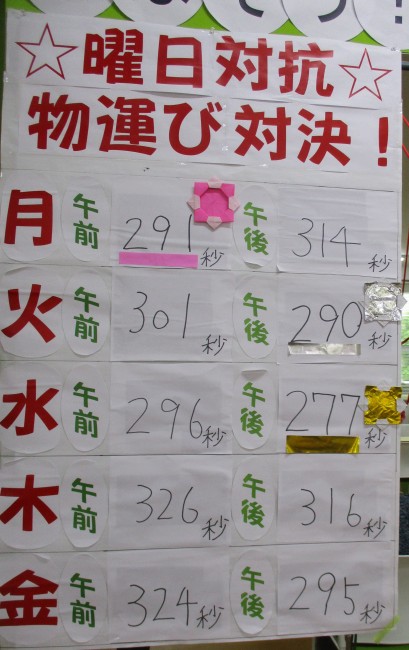 ☆曜日対抗☆
物運び対決！
月 午前 291秒 午後 314秒
火 午前 301秒 午後 290秒
水 午前 296秒 午後 277秒
木 午前 326秒 午後 316秒
金 午前 324秒 午後 295秒